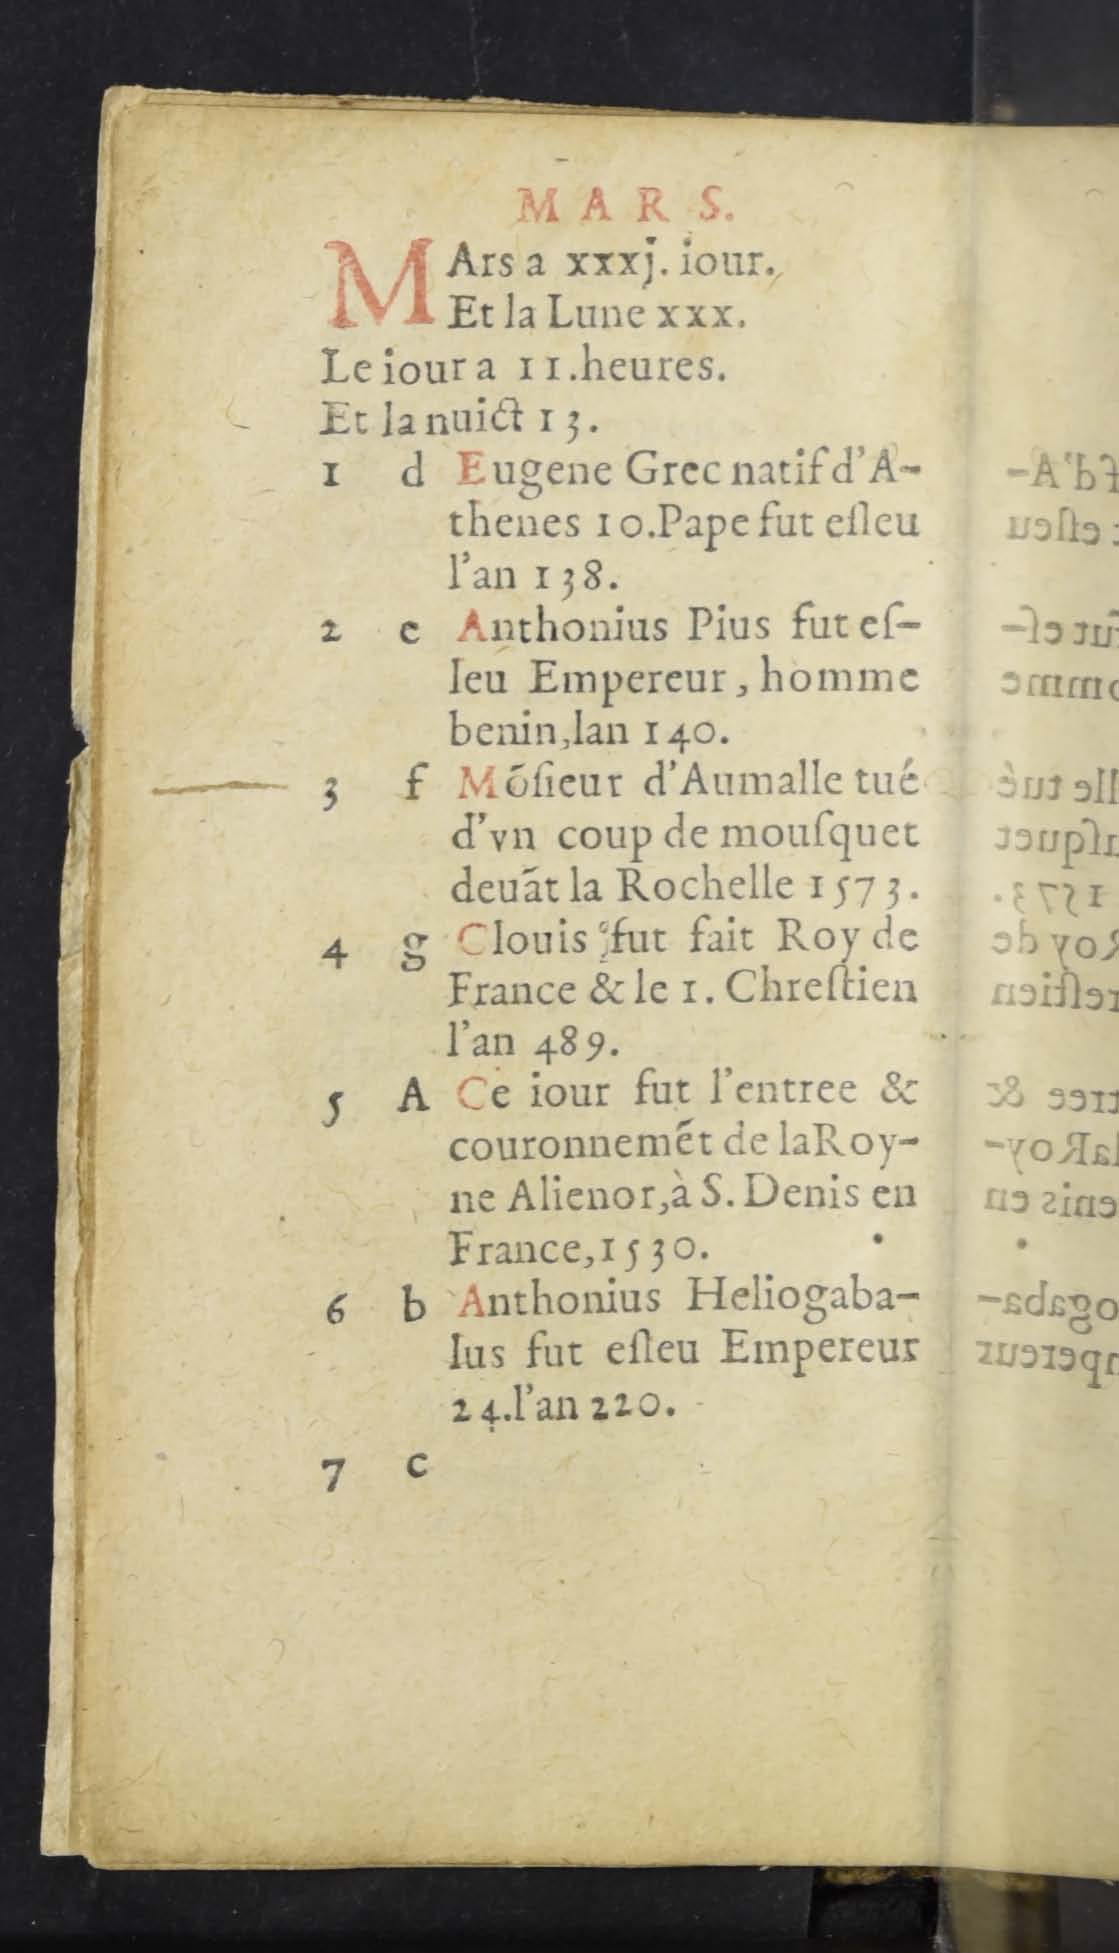 MARS.
MArs a xxxj. iour.
Et la Lune xxx.
Le iour a 11.heures.
Et la nuict 13.
1 d Eugene Grec natif d'A-
thenes 10.Pape fut eſleu
l'an 138.
2 e Anthonius Pius fut eſ-
leu Empereur, homme
benin,lan 140.
3 f Mōſieur d'Aumalle tué
d'vn coup de mouſquet
deuāt la Rochelle 1573.
4 g Clouis fut fait Roy de
France & le 1. Chreſtien
l'an 489.
5 A Ce iour fut l'entree &
couronnemēt de laRoy-
ne Alienor,à S. Denis en
France,1530.
6 b Anthonius Heliogaba-
lus fut eſleu Empereur
24.l'an 220.
7 c